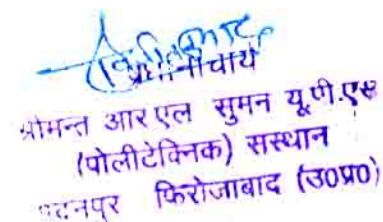 प्रधानाचार्य
श्रीमन्त आर एल सुमन यू.पी.एस
(पोलीटेक्निक) संस्थान
फिरोजाबाद (उ०प्र०)